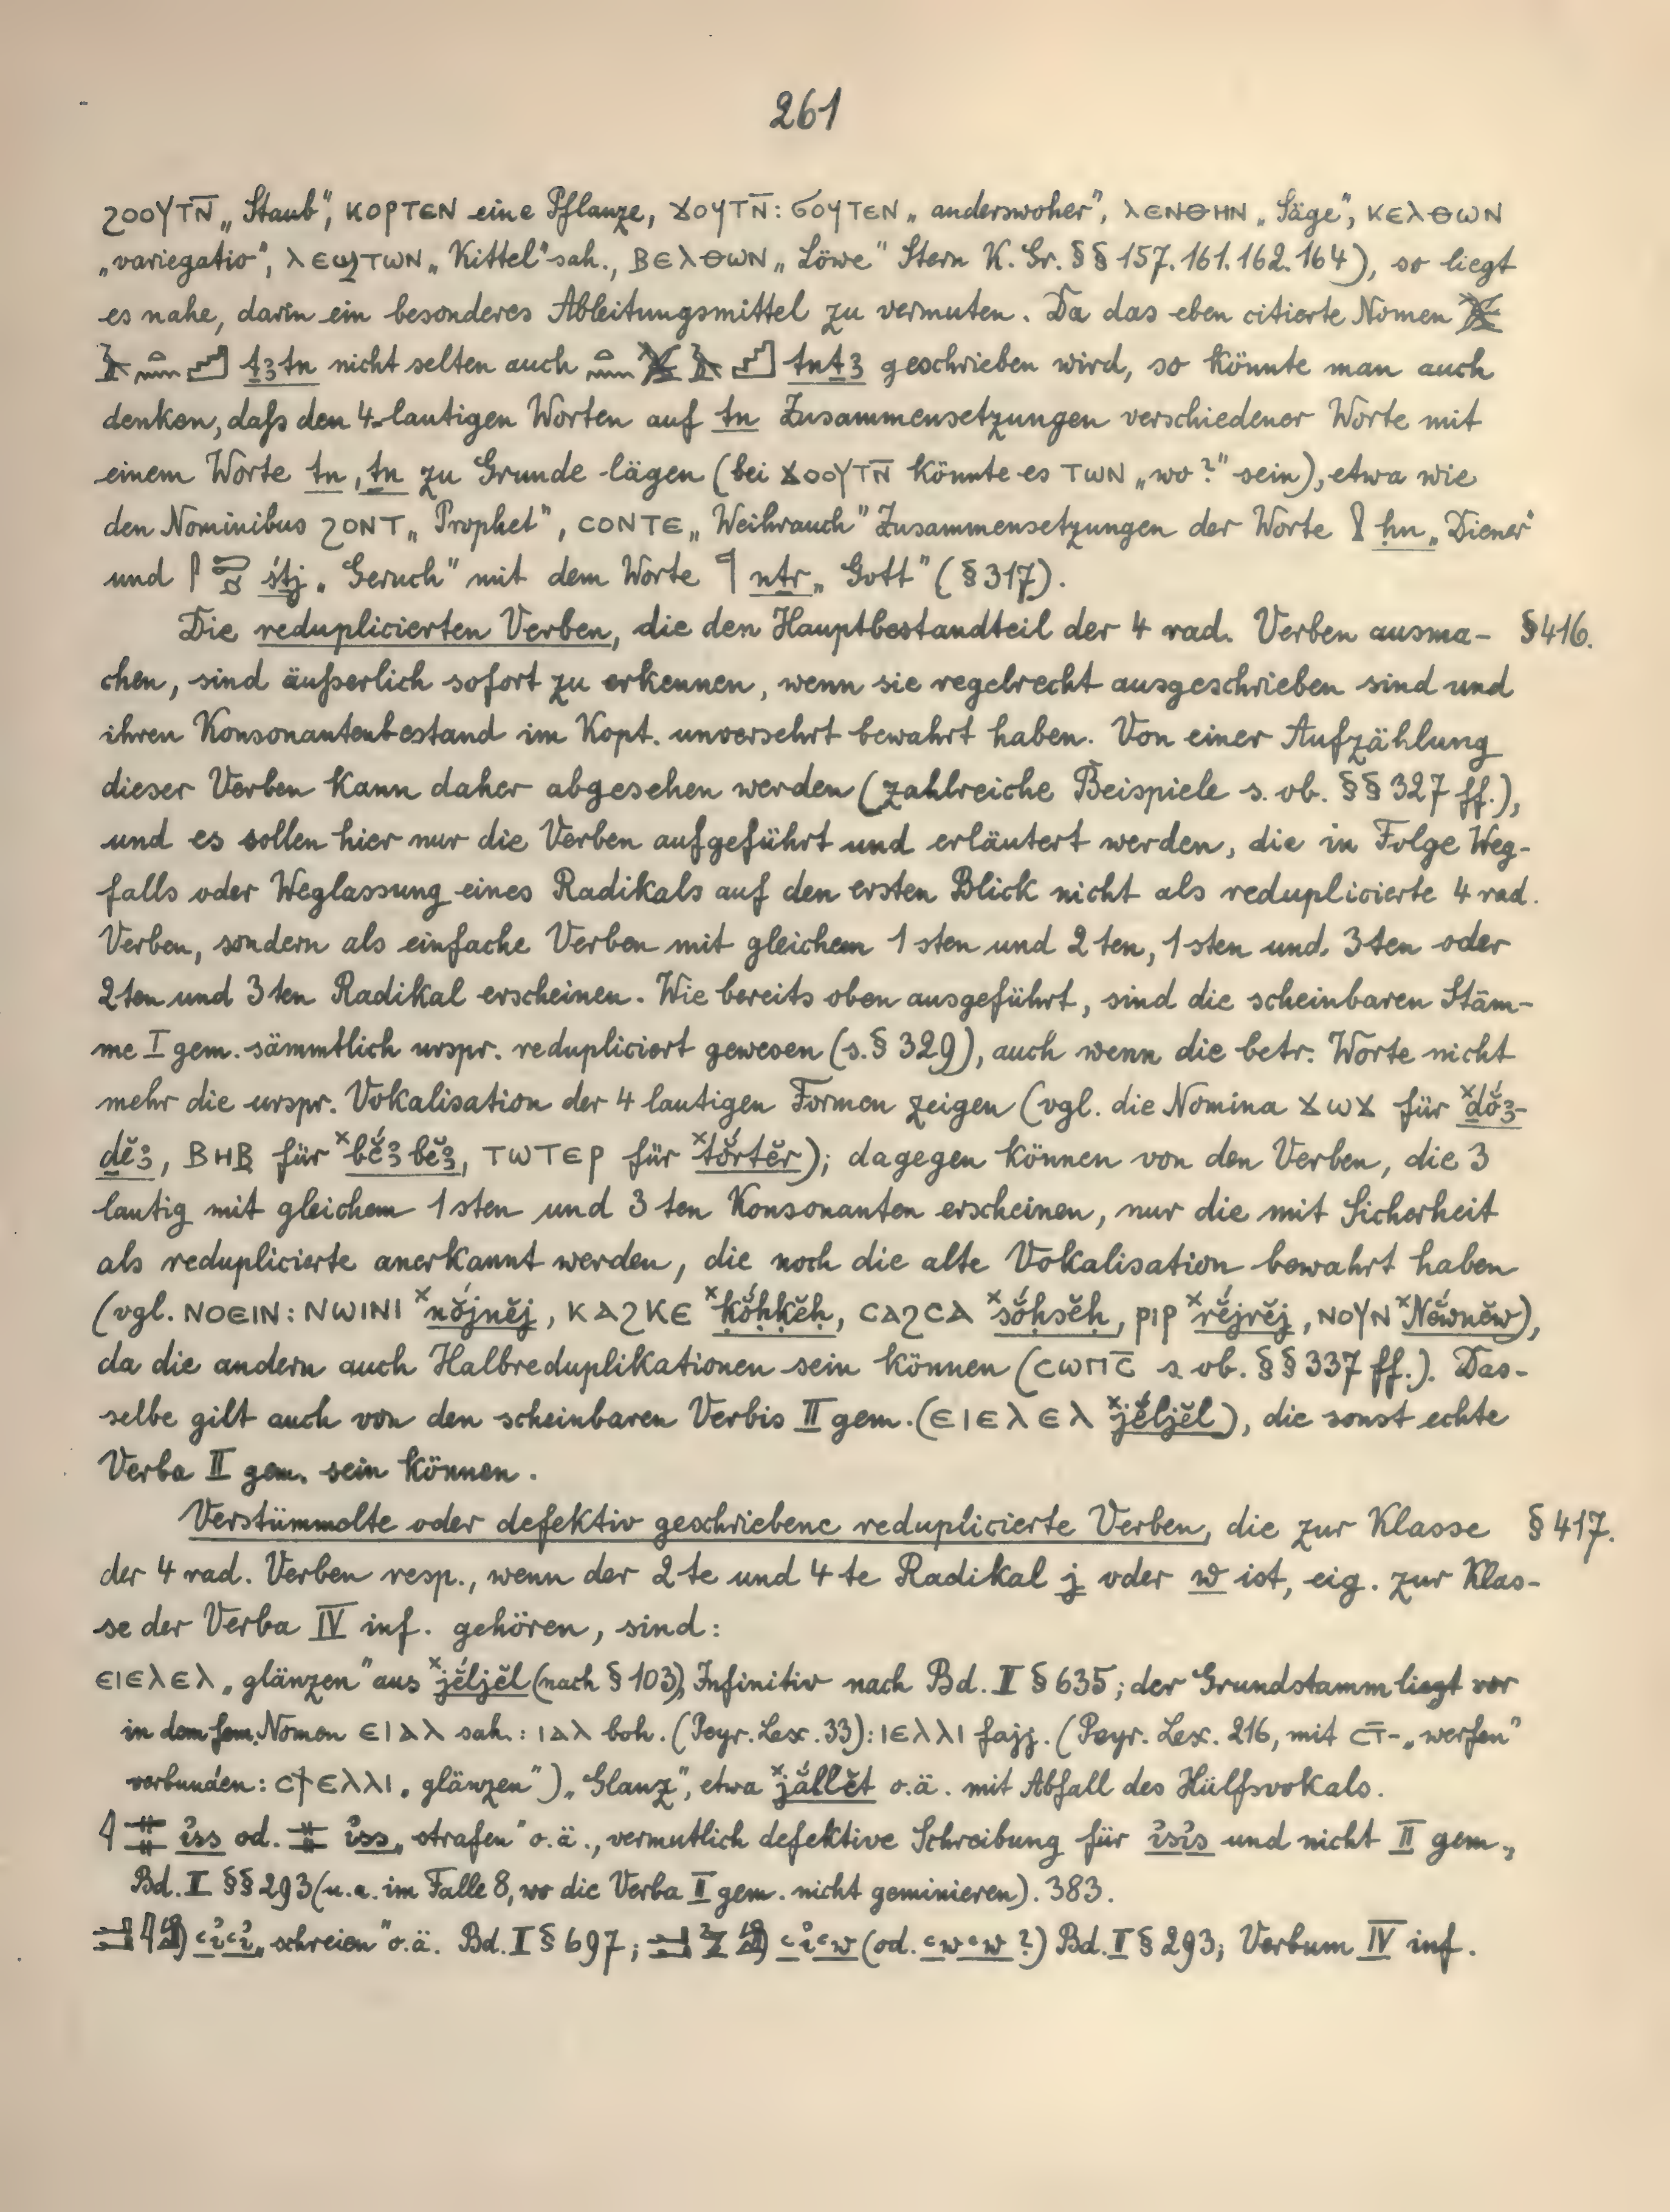 261
ϩⲟⲟⲩⲧⲛ̄ „Staub“, ⲕⲟⲣⲧⲉⲛ eine Pflanze, ϫⲟⲩⲧⲛ̄: ϭⲟⲩⲧⲉⲛ „anderswoher“, ⲗⲉⲛⲑⲏⲛ „Säge“, ⲕⲉⲗⲑⲱⲛ
„variegatio“, ⲗⲉϣⲧⲱⲛ „Kittel“ sah., ⲃⲉⲗⲑⲱⲛ „Löwe“ Stern K. Gr. §§ 157. 161. 162. 164), so liegt
es nahe, darin ein besonderes Ableitungsmittel zu vermuten. Da das eben citierte Nomen
ṯꜣtn nicht selten auch tnṯꜣ geschrieben wird, so könnte man auch
denken, daſs den 4-lautigen Worten auf tn Zusammensetzungen verschiedener Worte mit
einem Worte tn, ṯn zu Grunde lägen (bei ϫⲟⲟⲩⲧⲛ̄ könnte es ⲧⲱⲛ „wo?“ sein), etwa wie
den Nominibus ϩⲟⲛⲧ „Prophet“, ⲥⲟⲛⲧⲉ „Weihrauch“ Zusammensetzungen der Worte ḥn „Diener“
und śtj „Geruch“ mit dem Worte nṯr „Gott“ (§ 317).
Die reduplicierten Verben, die den Hauptbestandteil der 4 rad. Verben ausma- § 416.
chen, sind äuſserlich sofort zu erkennen, wenn sie regelrecht ausgeschrieben sind und
ihren Konsonantenbestand im Kopt. unversehrt bewahrt haben. Von einer Aufzählung
dieser Verben kann daher abgesehen werden (zahlreiche Beispiele s. ob. §§ 327 ff.),
und es sollen hier nur die Verben aufgeführt und erläutert werden, die in Folge Weg-
falls oder Weglassung eines Radikals auf den ersten Blick nicht als reduplicierte 4 rad.
Verben, sondern als einfache Verben mit gleichem 1sten und 2ten, 1sten und 3ten oder
2ten und 3ten Radikal erscheinen. Wie bereits oben ausgeführt, sind die scheinbaren Stäm-
me I gem. sämmtlich urspr. redupliciert gewesen (s. § 329), auch wenn die betr. Worte nicht
mehr die urspr. Vokalisation der 4 lautigen Formen zeigen (vgl. die Nomina ϫⲱϫ für ˣḏŏ́ꜣ-
ḏĕꜣ, ⲃⲏⲃ für ˣbĕ́ꜣbĕꜣ, ⲧⲱⲧⲉⲣ für ˣtŏ́rtĕr); dagegen können von den Verben, die 3
lautig mit gleichem 1sten und 3ten Konsonanten erscheinen, nur die mit Sicherheit
als reduplicierte anerkannt werden, die noch die alte Vokalisation bewahrt haben
(vgl. ⲛⲟⲉⲓⲛ: ⲛⲱⲓⲛⲓ ˣnŏ́jnĕj, ⲕⲁϩⲕⲉ ˣḳŏ́ḥḳĕḥ, ⲥⲁϩⲥⲁ ˣsŏ́ḥsĕḥ, ⲣⲓⲣ ˣrĕ́jrĕj, ⲛⲟⲩⲛ ˣNĕ́wnĕw),
da die andern auch Halbreduplikationen sein können (ⲥⲱⲡⲥ̄ s. ob. §§ 337 ff.). Das-
selbe gilt auch von den scheinbaren Verbis II gem. (ⲉⲓⲉⲗⲉⲗ ˣjĕ́ljĕl), die sonst echte
Verba II gem. sein können.
Verstümmelte oder defektiv geschriebene reduplicierte Verben, die zur Klasse § 417.
der 4 rad. Verben resp., wenn der 2te und 4te Radikal j oder w ist, eig. zur Klas-
se der Verba IV inf. gehören, sind:
ⲉⲓⲉⲗⲉⲗ „glänzen“ aus ˣjĕ́ljĕl (nach § 103), Infinitiv nach Bd. II § 635; der Grundstamm liegt vor
in dem fem. Nomen ⲉⲓⲁⲗ sah.: ⲓⲁⲗ boh. (Peyr. Lex. 33): ⲓⲉⲗⲗⲓ fajj. (Peyr. Lex. 216, mit ⲥⲧ̄- „werfen“
verbunden: ⲥϯⲉⲗⲗⲓ „glänzen“) „Glanz“, etwa ˣjắllĕt o.ä. mit Abfall des Hülfsvokals.
ỉss od. ỉss „strafen“ o.ä., vermutlich defektive Schreibung für ỉsỉs und nicht II gem.,
Bd. I §§ 293 (u. a. im Falle 8, wo die Verba II gem. nicht geminieren). 383.
ꜥỉꜥỉ „schreien“ o.ä. Bd. I § 697; ꜥỉꜥw (od. ꜥwꜥw?) Bd. I § 293; Verbum IV inf.